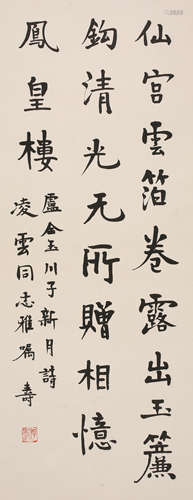 仙宮雲箔卷露出玉簾
鈎清光无所贈相憶
鳳皇樓
盧仝玉川子新月詩
凌雲同志雅嘱 壽